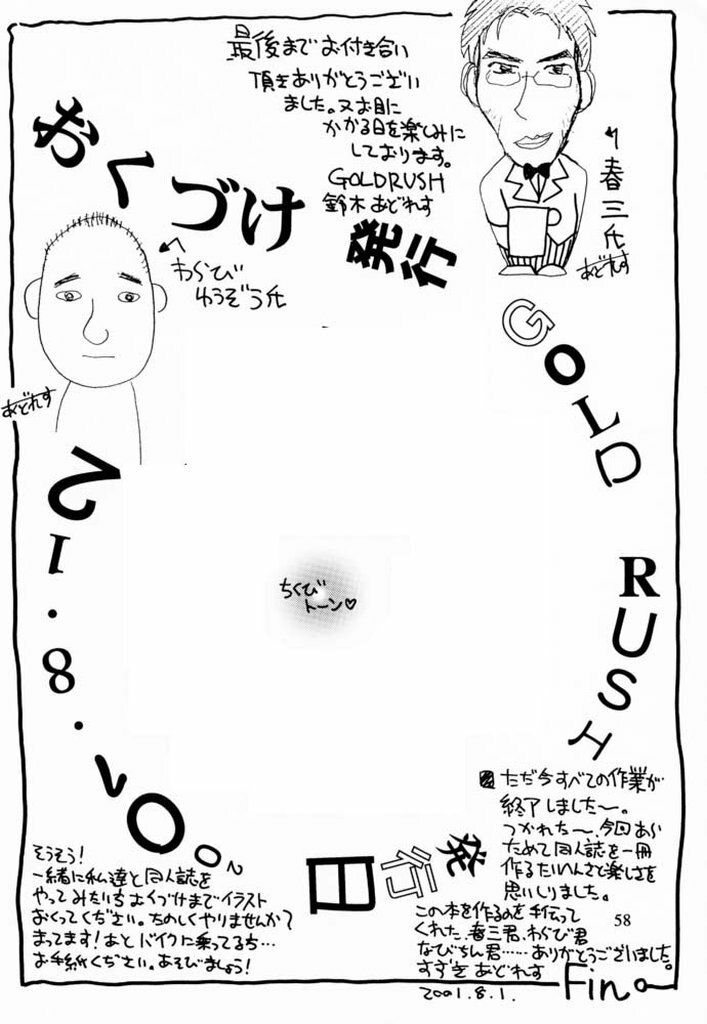 最後までお付き合い
頂きありがとうござい
ました。又お目に
かかる日を楽しみに
しております。
GOLDRUSH
鈴木あどれす
おくづけ
発行
春三氏
あどれす
わらび
ゆうぞう氏
あどれす
GOLD RUSH
ちくび
トーン♡
発行日
2002.8.12
ただ今すべての作業が
終了しました〜。
つかれち〜、今回あら
ためて同人誌を一冊
作るたいへんさと楽しさを
思いしりました。
この本を作るのを手伝って
くれた、春三君、わらび君
なびちん君……ありがとうございました。
すずきあどれす
2001.8.1.
58
Fin。
そうそう!
一緒に私達と同人誌を
やってみたいちおくづけまでイラスト
おくってください。たのしくやりませんか?
まってます!あとバイクに乗ってるち…
お手紙ください。あそびましょう!